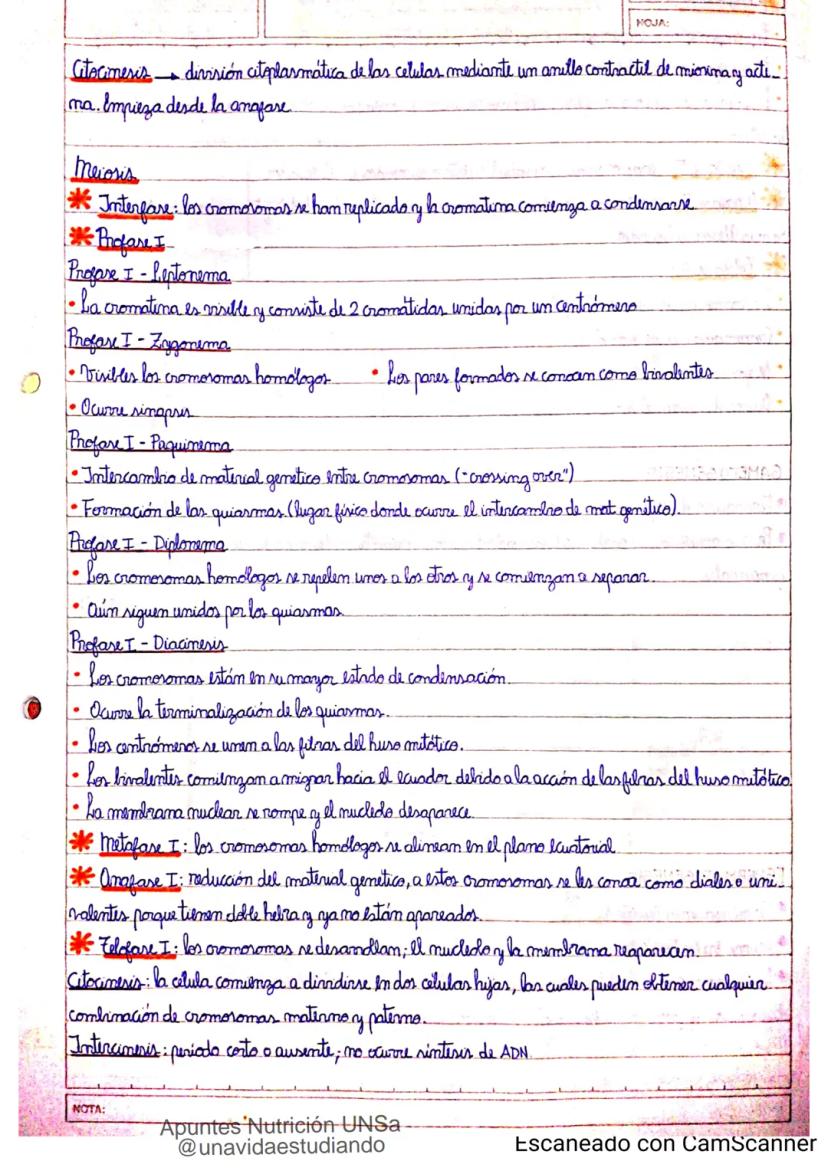 HOJA:
Citocinesis → división citoplasmática de las celulas mediante un anillo contractil de miosina y acti-
na. Empieza desde la anafase
Meiosis
* Interfase: los cromosomas se han replicado y la cromatina comienza a condensarse
* Profase I
Profase I - Leptonema
• La cromatina es visible y consiste de 2 cromátidas unidas por un centrómero
Profase I - Zygonema
• Visibles los cromosomas homólogos • Los pares formados se conocen como bivalentes
• Ocurre sinapsis
Profase I - Paquinema
• Intercambio de material genetico entre cromosomas ("crossing over")
• Formación de las quiasmas (lugar físico donde ocurre el intercambio de mat. genético).
Profase I - Diplonema
• Los cromosomas homólogos se repelen unos a los otros y se comienzan a separar.
• Aún siguen unidos por los quiasmas
Profase I - Diacinesis
• Los cromosomas están en su mayor estado de condensación.
• Ocurre la terminalización de los quiasmas.
• Los centrómeros se unen a las fibras del huso mitótico.
• Los bivalentes comienzan a migrar hacia el ecuador debido a la acción de las fibras del huso mitótico.
• La membrana nuclear se rompe y el nucleolo desaparece.
* Metafase I: los cromosomas homólogos se alinean en el plano ecuatorial
* Anafase I: reducción del material genetico, a estos cromosomas se les conoce como diales o uni-
valentes porque tienen doble hebra y ya no están apareados.
* Telofase I: los cromosomas se desarrollan; el nucleolo y la membrana reaparecen.
Citocinesis: la célula comienza a dividirse en dos células hijas, las cuales pueden obtener cualquier
combinación de cromosomas materno y paterno.
Intercinesis: periodo corto o ausente; no ocurre síntesis de ADN
NOTA:
Apuntes Nutrición UNSa
@unavidaestudiando
Escaneado con CamScanner